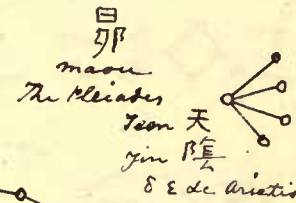 昴
maou
The Pleiades
Teen 天
Yin 陰
δ ε &c Arietis